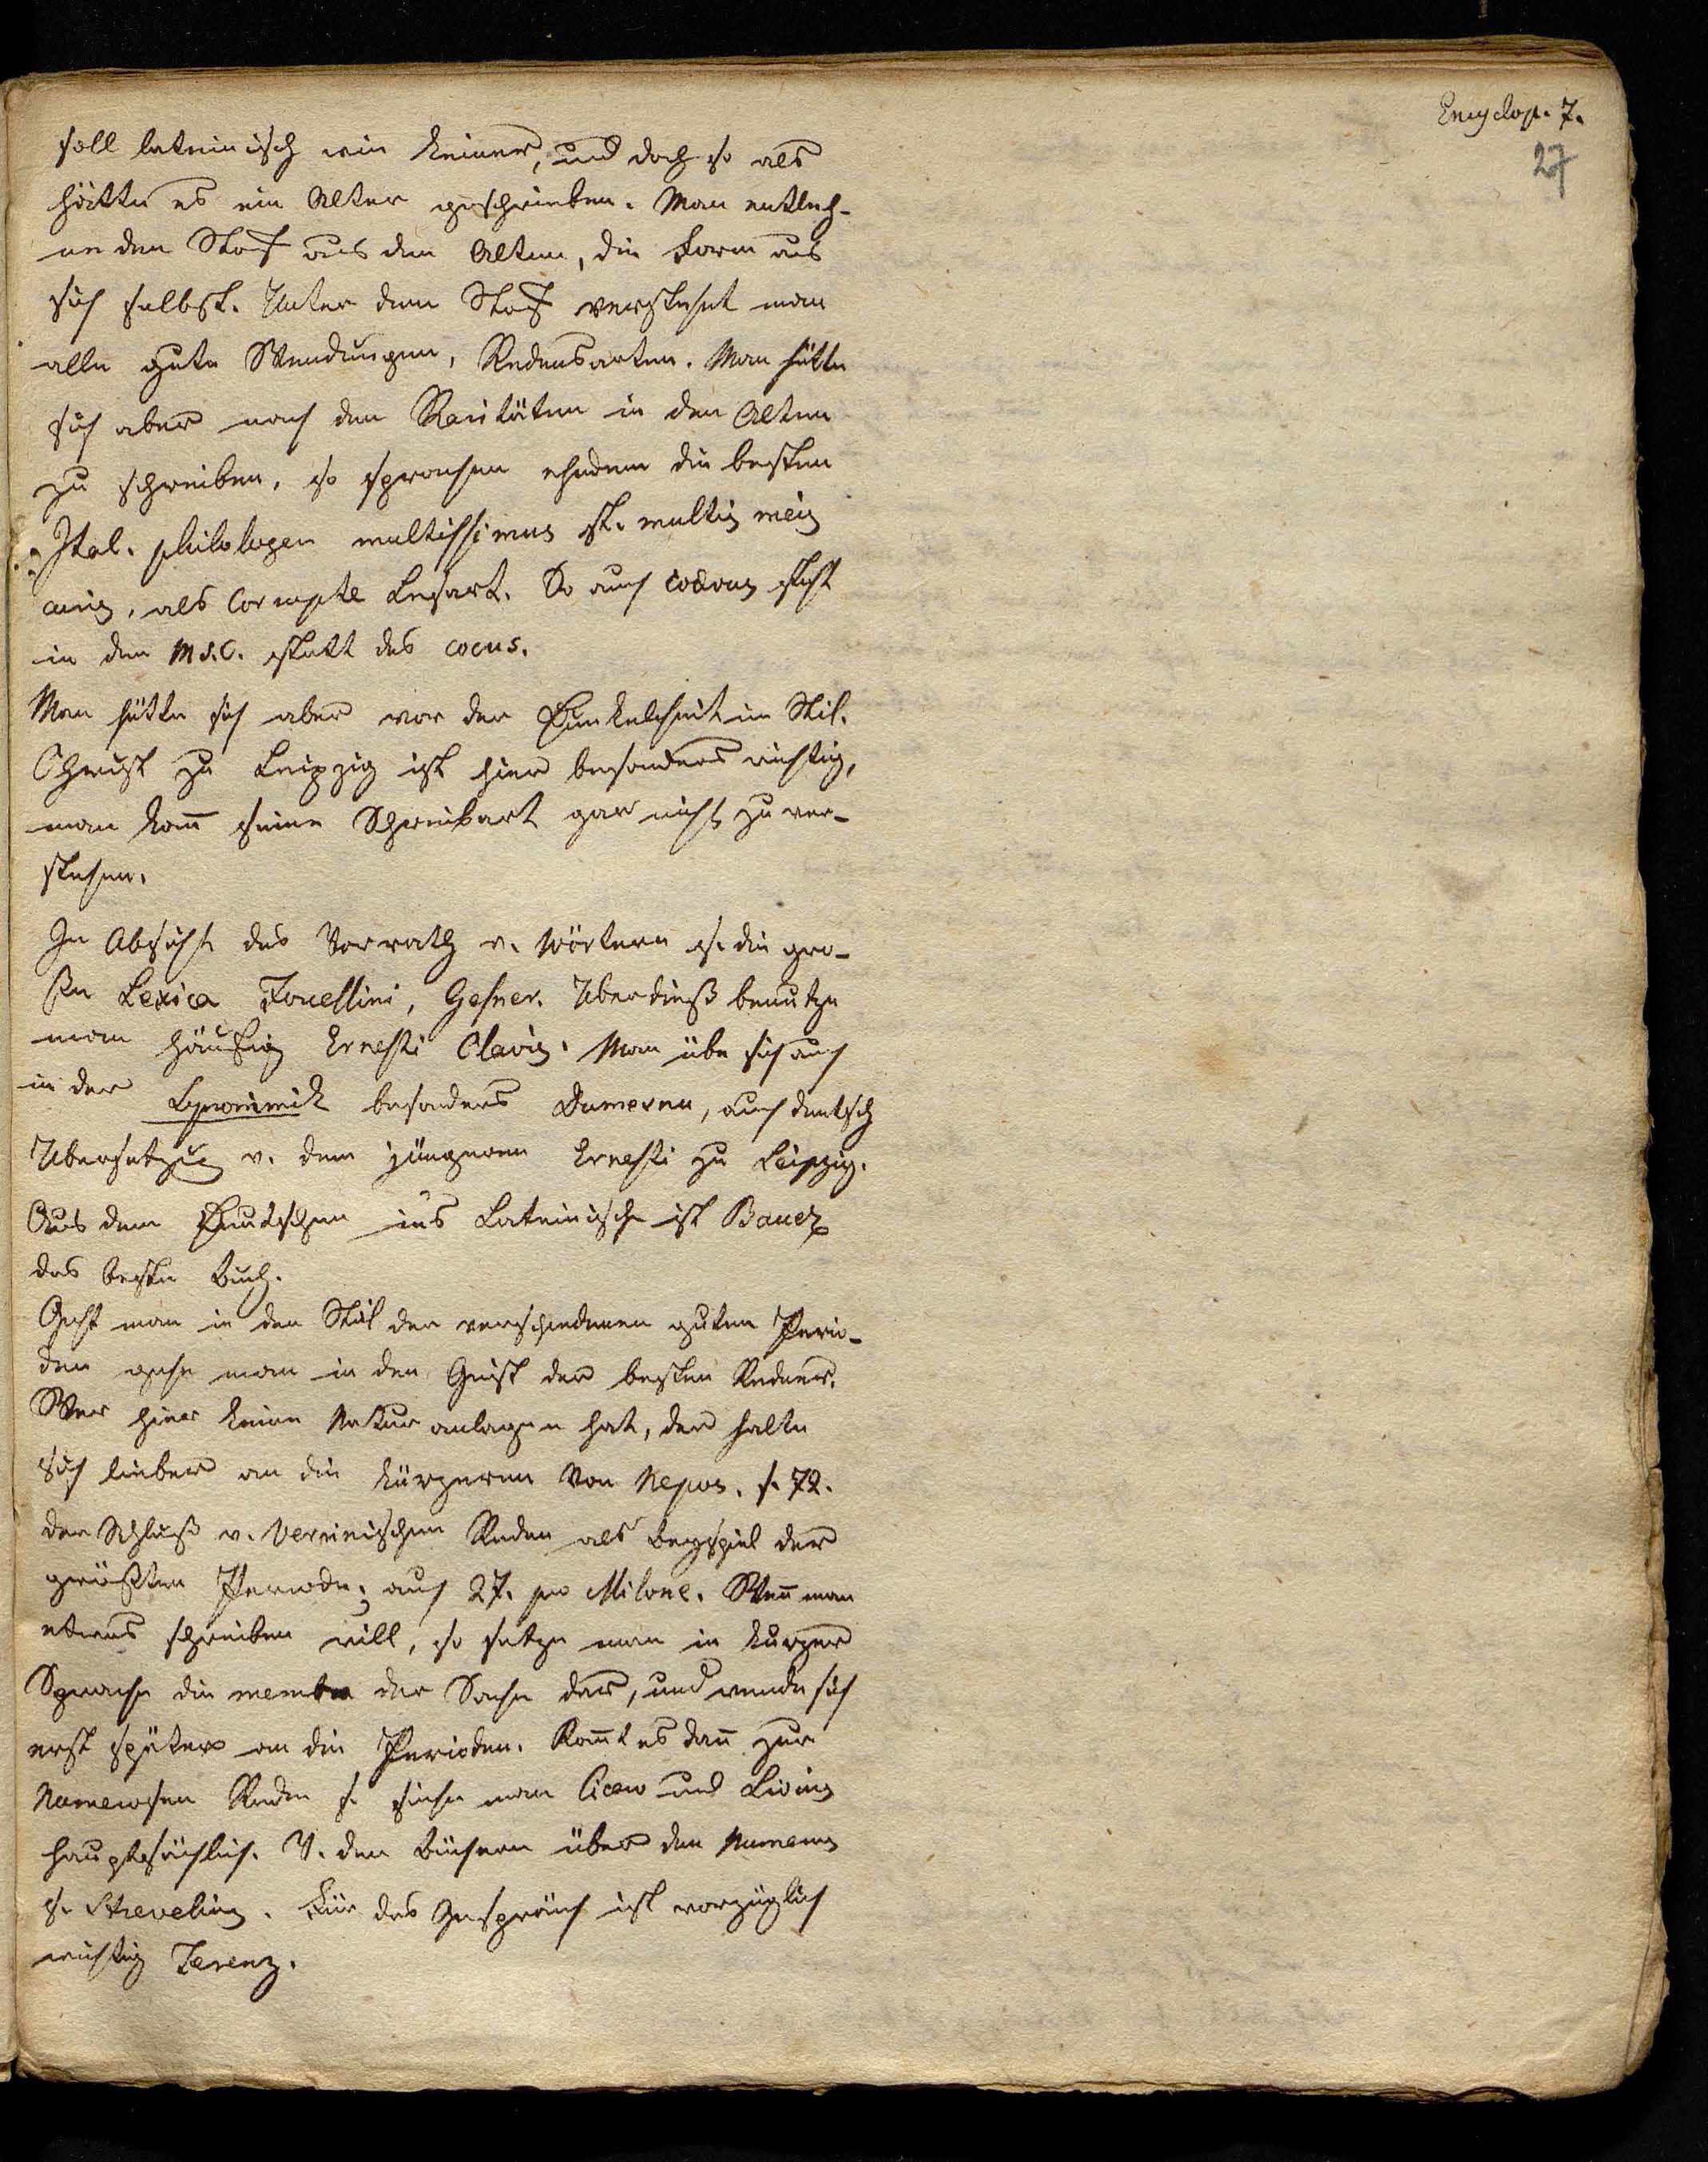 Encyclop. 7.
27
soll lateinisch wie keiner, und doch so als
hätte es ein Alter geschrieben. Man entleh-
ne den Stoff aus den Alten, die Form aus
sich selbst. Unter dem Stoff verstehet man
alle gute Wendungen, Redensarten. Man hütte
sich aber nach den Raritäten in den Alten
zu schreiben, so sprachen ehedem die besten
Ital. philologen multissimus st. multis
als Corrupte Lesart. So auch steht
in den Ms.C. statt des cocus.
Man hütte sich aber vor der Dunkelheit im Stil.
Christ zu Leipzig ist hier besonders wichtig,
man kom̄ seine Schreibart gar nicht zu ver-
stehen.
In Absicht des Vorraths v. Wörtern s. die gro-
ßen Lexica Forcellini, Gesner. Uberdieß benutze
man häufig Ernesti Clavis. Man übe sich auch
in der Synonimik besonders Dumesnu, auch deutsch
Ubersetzung v. dem jüngeren Ernesti zu Leipzig.
Aus dem Deutschen ins Lateinische ist Bauer
das beste Buch.
Geht man in den Stil der verschiedenen guten Perio-
den gehe man in den Geist der besten Redner.
Wer hier keine Naturanlagen hat, der halte
sich lieber an die kürzeren von Nepos. s. 72.
der Schluß v. Verrinischen Reden als Beyspiel der
größten Periode, auch 27. pro Milone. Wen̄ man
etwas schreiben will, so setze man in kurzer
Sprache die membra der Sache dar, und wende sich
erst später an die Perioden. Kom̄t es dan̄ zur
Numerosen Rede s. siehe man Cicero und Livius
hauptsächlich. V. den Büchern über den Numerus
s. Strevelius. Für das Gespräch ist vorzüglich
wichtig Terenz.